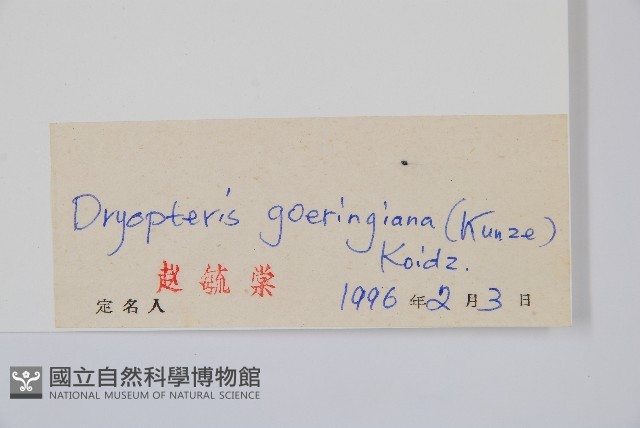 Dryopteris goeringiana (Kunze)
Koidz.
赵毓棠
定名人 1996年2月3日
國立自然科學博物館
NATIONAL MUSEUM OF NATURAL SCIENCE